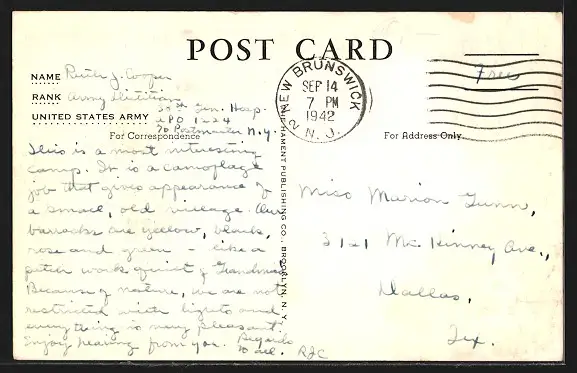 POST CARD
NAME Ruth J. Cooper
RANK Army Dietitian
30th Gen. Hosp.
UNITED STATES ARMY APO 1224
% Postmaster N.Y.
For Correspondence
This is a most interesting
camp. It is a camoflage
job that gives appearance of
a small, old village. Our
barracks are yellow, black,
rose and green - like a
patch work quilt of Grandma's
Because of nature, we are not
restricted with lights and
everything is very pleasant.
Enjoy hearing from you. Regards
to all. RJC
PUBLISHING CO., BROOKLYN, N.Y.
NEW BRUNSWICK
SEP 14
7 PM
1942
N.J.
2
Free
For Address Only
Miss Marion Gunn,
3121 Mc Kinney Ave.,
Dallas,
Tex.